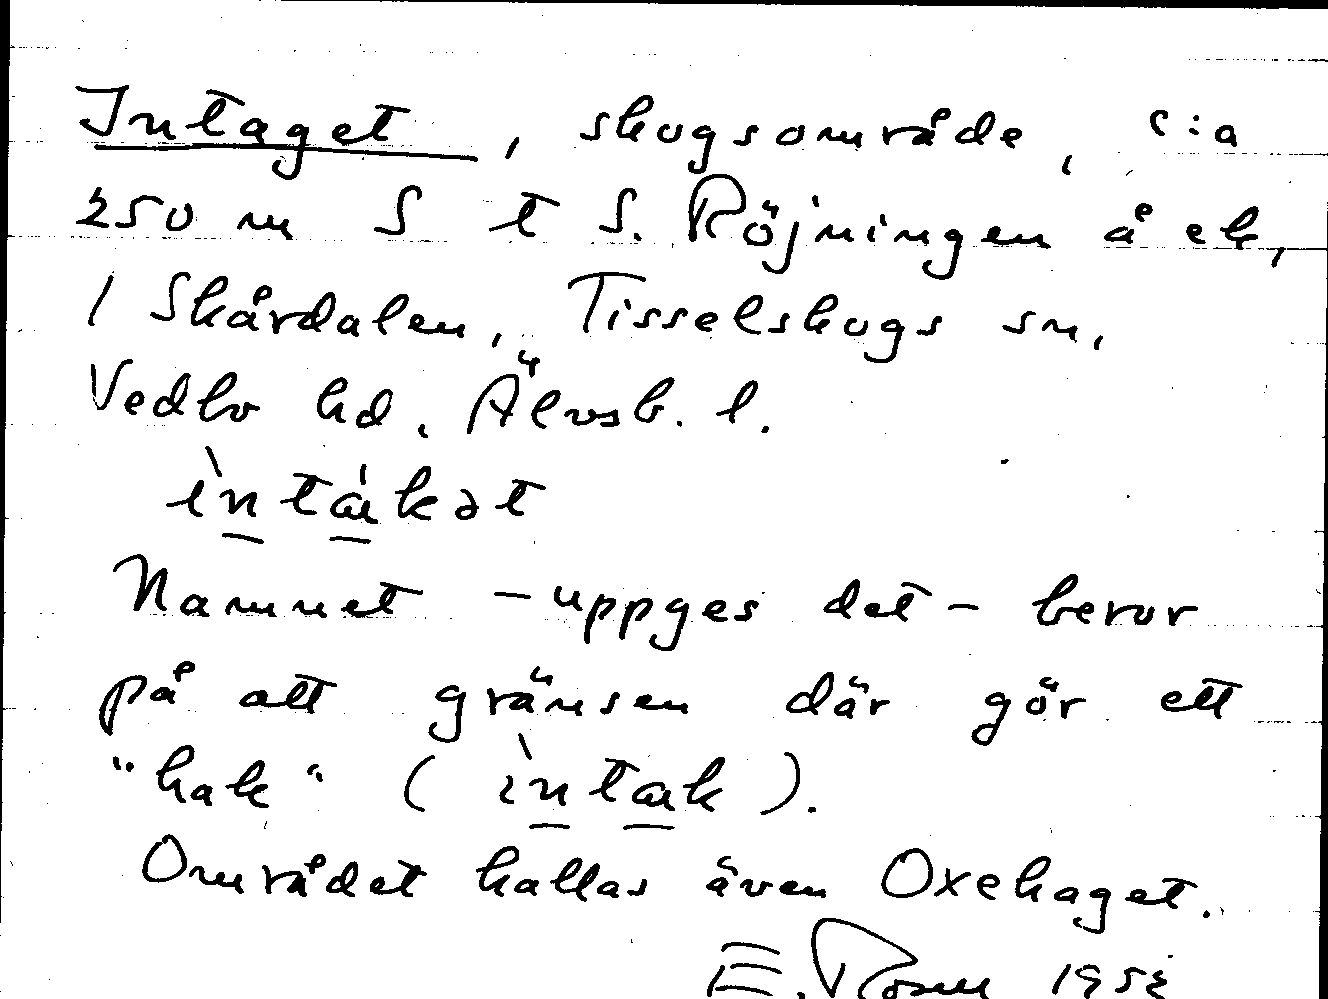 Intaget, skogsområde, c:a
250 m S t S. Röjningen å ek,
1 Skårdalen, Tisselskogs sn,
Vedbo hd, Älvsb. l.
ìntákət
Namnet – uppges det – beror
på att gränsen där gör ett
"hak" (ìntak).
Området kallas även Oxehaget.
E. 195